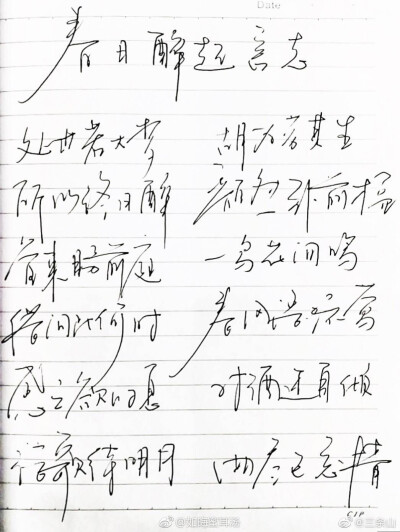 Date
春日醉起言志
处世若大梦 胡为劳其生
所以终日醉 颓然卧前楹
觉来盼前庭 一鸟花间鸣
借问此何时 春风语流莺
感之欲叹息 对酒还自倾
浩歌待明月 曲尽已忘情
@三余山